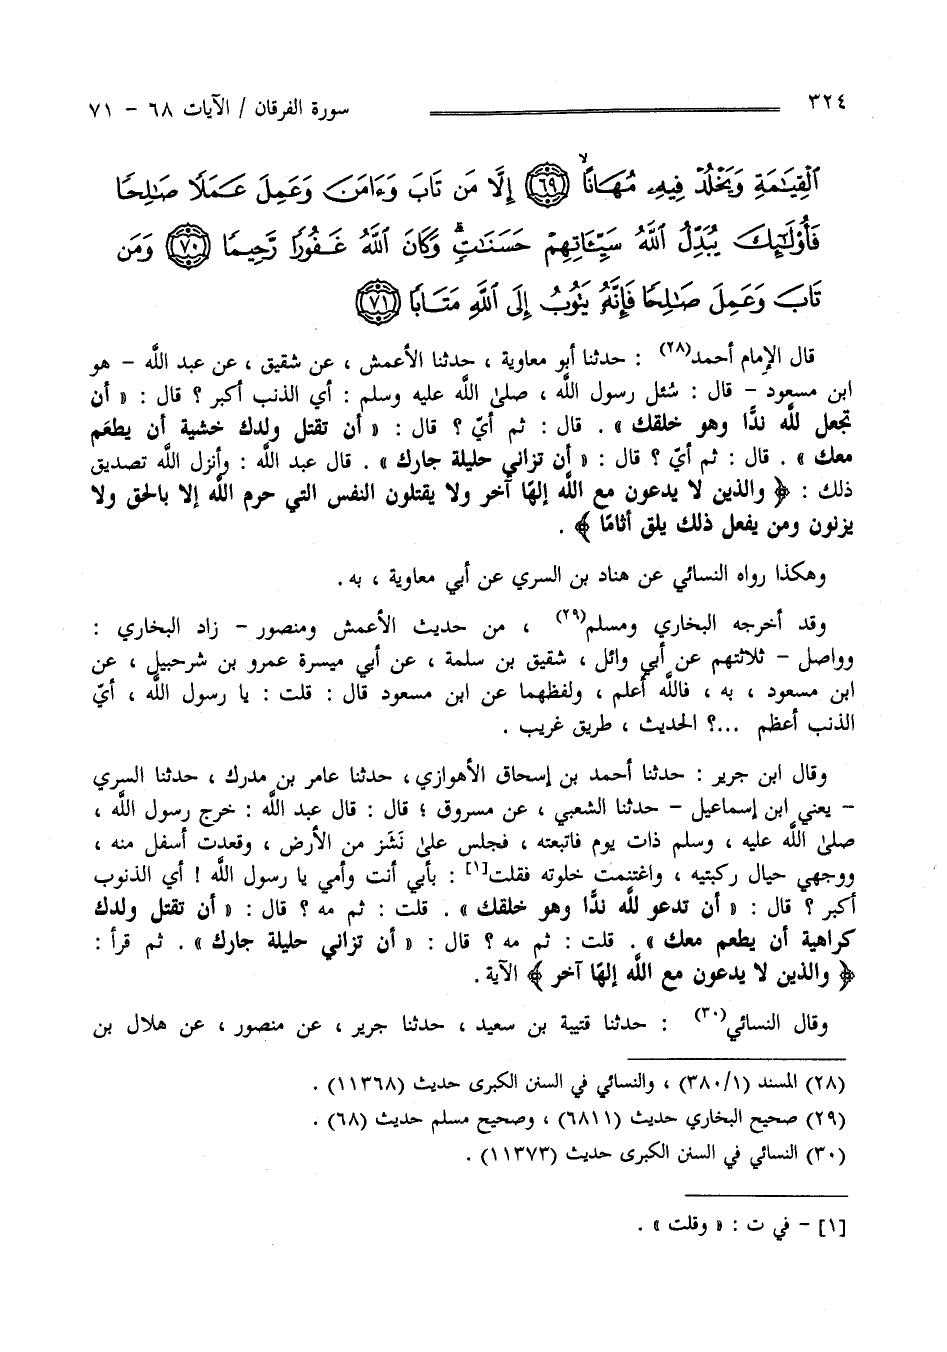 ٣٢٤ سورة الفرقان / الآيات ٦٨ - ٧١
ٱلْقِيَٰمَةِ وَيَخْلُدْ فِيهِۦ مُهَانًا ۙ ﴿٦٩﴾ إِلَّا مَن تَابَ وَءَامَنَ وَعَمِلَ عَمَلًا صَٰلِحًا
فَأُو۟لَٰٓئِكَ يُبَدِّلُ ٱللَّهُ سَيِّـَٔاتِهِمْ حَسَنَٰتٍ ۗ وَكَانَ ٱللَّهُ غَفُورًا رَّحِيمًا ﴿٧٠﴾ وَمَن
تَابَ وَعَمِلَ صَٰلِحًا فَإِنَّهُۥ يَتُوبُ إِلَى ٱللَّهِ مَتَابًا ﴿٧١﴾
قال الإمام أحمد(٢٨) : حدثنا أبو معاوية ، حدثنا الأعمش ، عن شقيق ، عن عبد اللَّه – هو
ابن مسعود – قال : سُئل رسول اللَّه ، صلىٰ اللَّه عليه وسلم : أي الذنب أكبر ؟ قال : « أن
تجعل للَّه ندًّا وهو خلقك » . قال : ثم أيّ ؟ قال : « أن تقتل ولدك خشية أن يطعَم
معك » . قال : ثم أيّ ؟ قال : « أن تزاني حليلة جارك » . قال عبد اللَّه : وأنزل اللَّه تصديق
ذلك : ﴿ والذين لا يدعون مع اللَّه إلهًا آخر ولا يقتلون النفس التي حرم اللَّه إلا بالحق ولا
يزنون ومن يفعل ذلك يلق أثامًا ﴾ .
وهكذا رواه النسائي عن هناد بن السري عن أبي معاوية ، به .
وقد أخرجه البخاري ومسلم(٢٩) ، من حديث الأعمش ومنصور – زاد البخاري :
وواصل – ثلاثتهم عن أبي وائل ، شقيق بن سلمة ، عن أبي ميسرة عمرو بن شرحبيل ، عن
ابن مسعود ، به ، فاللَّه أعلم ، ولفظهما عن ابن مسعود قال : قلت : يا رسول اللَّه ، أيّ
الذنب أعظم ...؟ الحديث ، طريق غريب .
وقال ابن جرير : حدثنا أحمد بن إسحاق الأهوازي ، حدثنا عامر بن مدرك ، حدثنا السري
– يعني ابن إسماعيل – حدثنا الشعبي ، عن مسروق ؛ قال : قال عبد اللَّه : خرج رسول اللَّه ،
صلىٰ اللَّه عليه ، وسلم ذات يوم فاتبعته ، فجلس علىٰ نَشَز من الأرض ، وقعدت أسفل منه ،
ووجهي حيال ركبتيه ، واغتنمت خلوته فقلت[١] : بأبي أنت وأمي يا رسول اللَّه ! أي الذنوب
أكبر ؟ قال : « أن تدعو للَّه ندًّا وهو خلقك » . قلت : ثم مه ؟ قال : « أن تقتل ولدك
كراهية أن يطعم معك » . قلت : ثم مه ؟ قال : « أن تزاني حليلة جارك » . ثم قرأ :
﴿ والذين لا يدعون مع اللَّه إلهًا آخر ﴾ الآية .
وقال النسائي(٣٠) : حدثنا قتيبة بن سعيد ، حدثنا جرير ، عن منصور ، عن هلال بن
(٢٨) المسند (٣٨٠/١) ، والنسائي في السنن الكبرى حديث (١١٣٦٨) .
(٢٩) صحيح البخاري حديث (٦٨١١) ، وصحيح مسلم حديث (٦٨) .
(٣٠) النسائي في السنن الكبرى حديث (١١٣٧٣) .
[١] – في ت : « وقلت » .